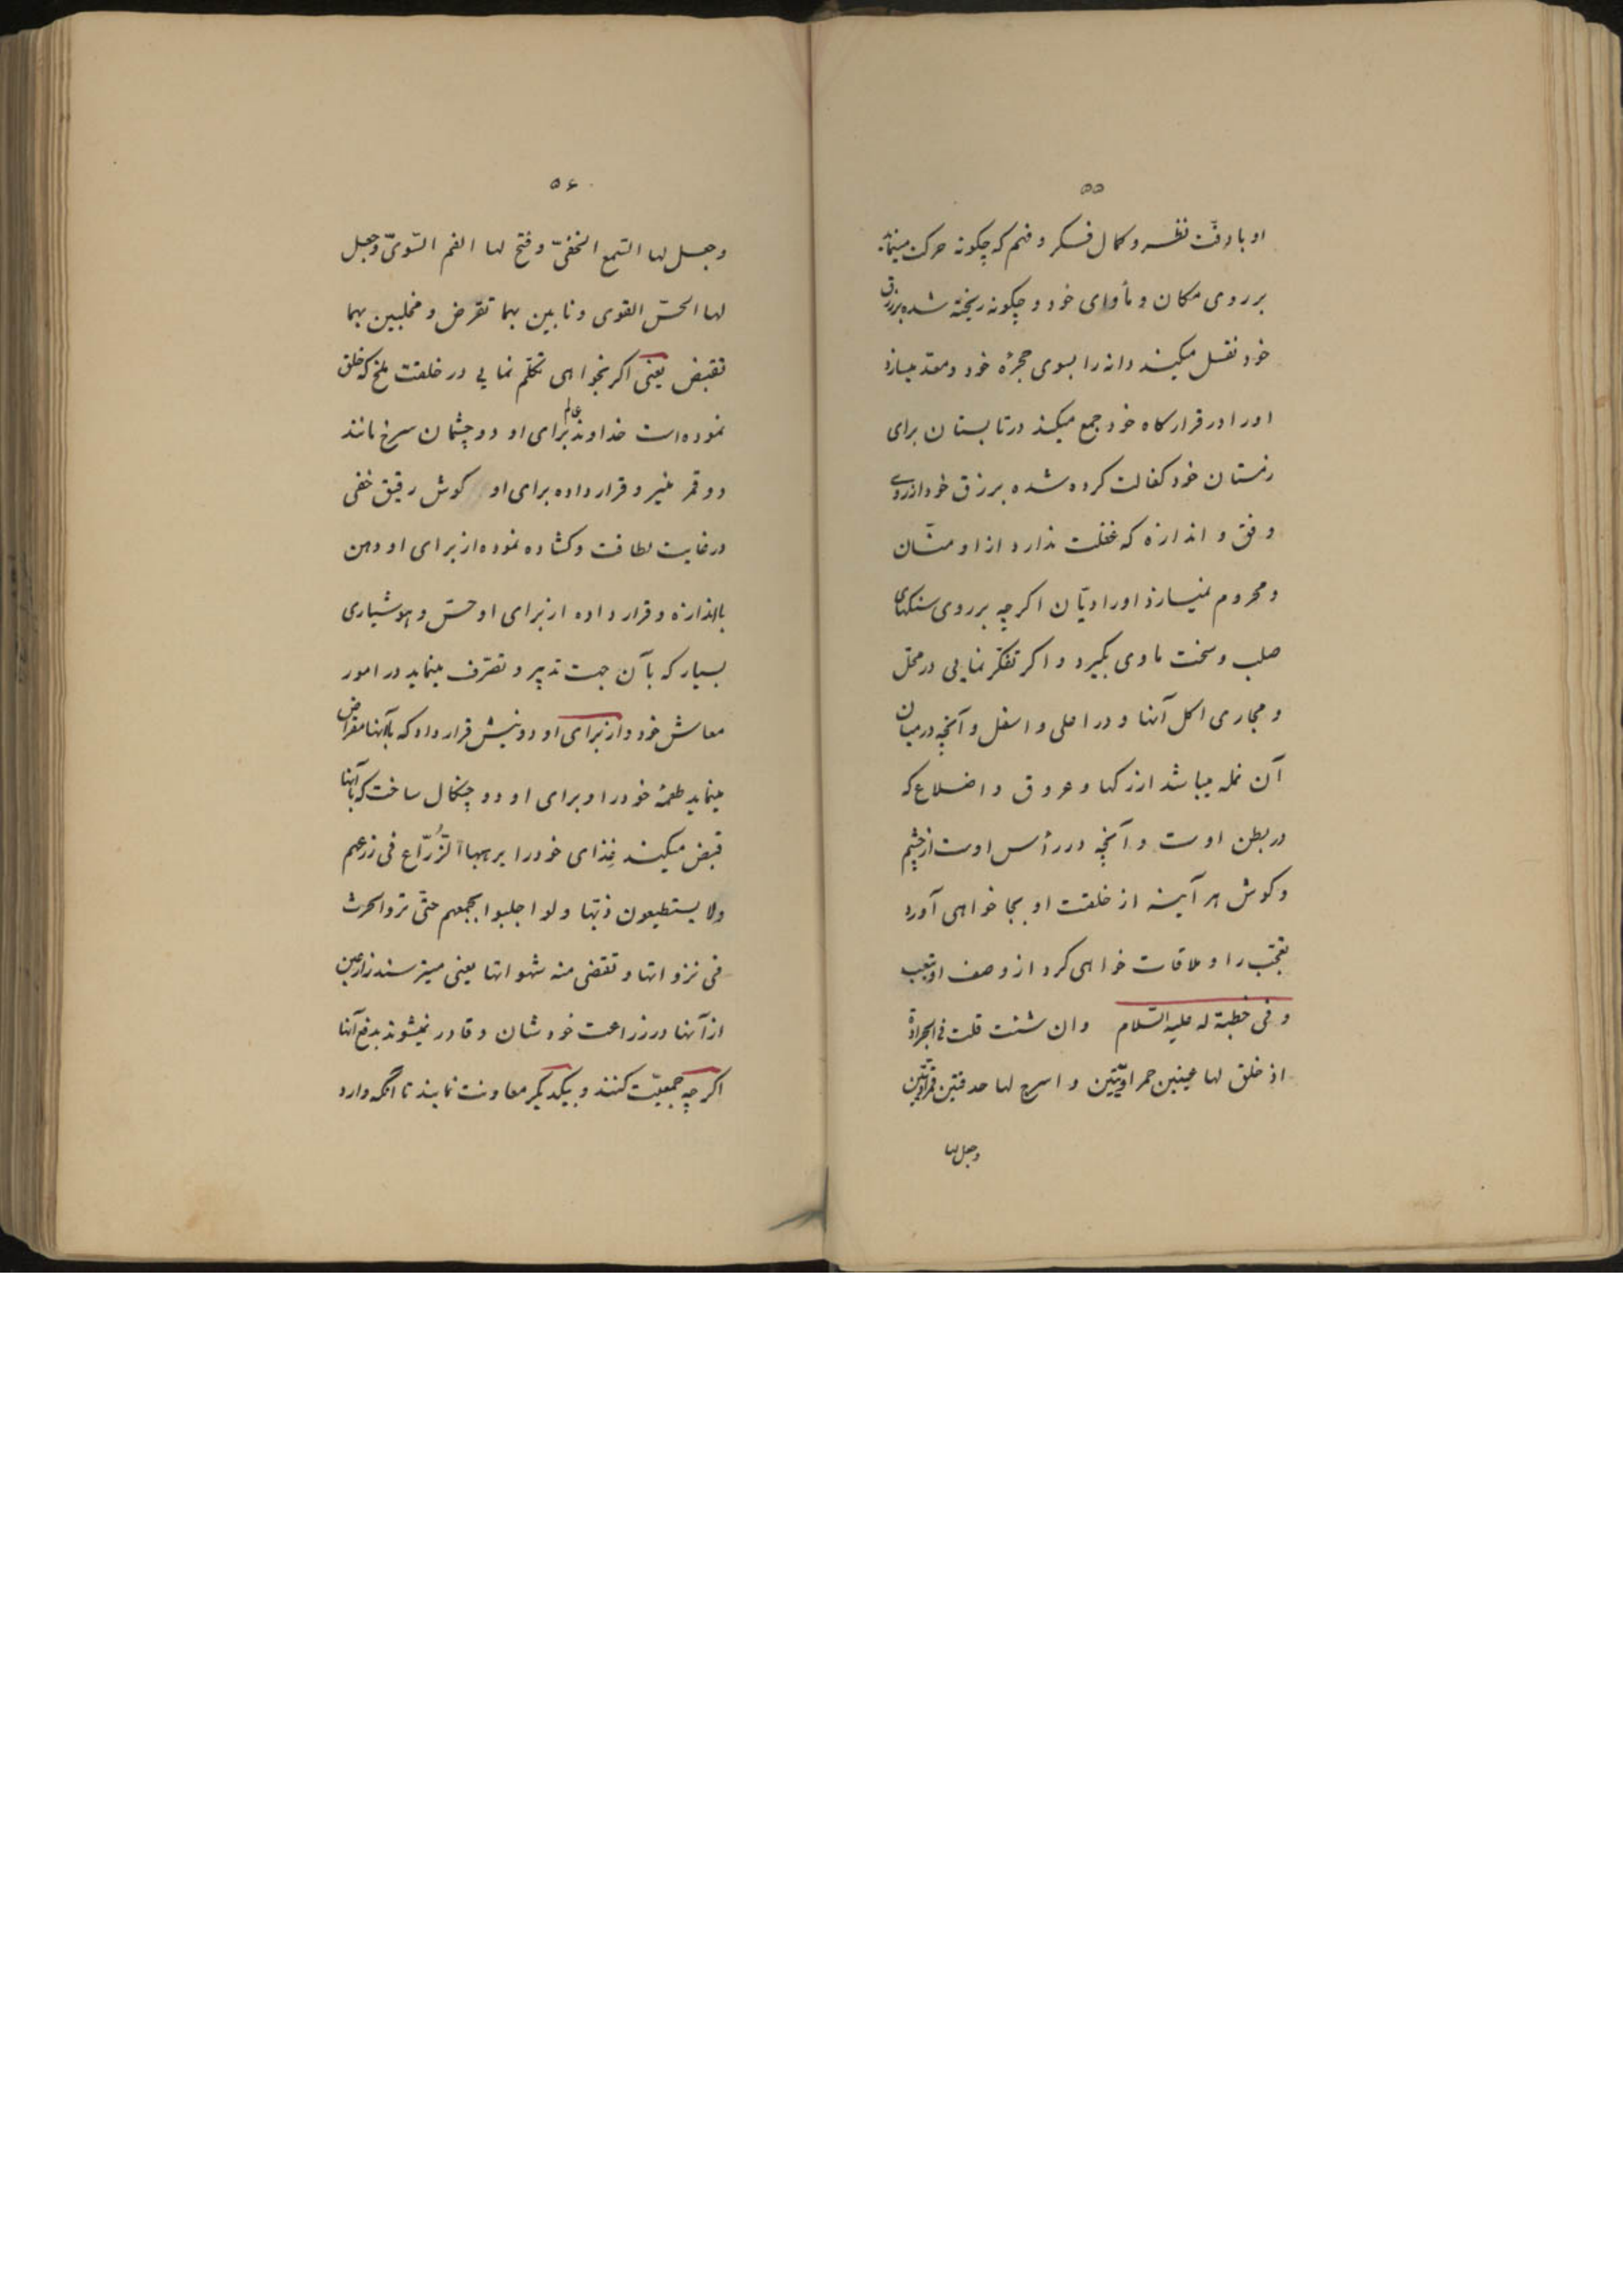 ۵۵
او با دقّت نظر و کمال فکر و فهم که چگونه حرکت مینماید
بر روی مکان و مأوای خود و چگونه ریخته شده بر رزق
خود نقل میکند دانه را بسوی حجرهٔ خود و معد میسازد
او را در قرارگاه خود جمع میکند در تابستان برای
زمستان خود کفالت کرده شده برزق خود از روی
وفق و اندازه که غفلت ندارد از او منّان
و محروم نمیسازد او را دیّان اگر چه بر روی سنگهای
صلب و سخت ماوی بگیرد و اگر تفکّر نمایی در محلّ
و مجاری اکل آنها و در اعلی و اسفل و آنچه در میان
آن نمله میباشد از رگها و عروق و اضلاع که
در بطن اوست و آنچه در رأس اوست از چشم
و گوش هر آینه از خلقت او بجا خواهی آورد
تعجّب را و ملاقات خواهی کرد از وصف او تعب
و فی خطبة له علیه السّلام وان شئت قلت فی الجرادة
اذ خلق لها عینین حمراویّتین و اسرج لها حدقتین قمراویّتین
وجعل لها
۵۶
وجعل لها السّمع الخفیّ و فتح لها الفم السّویّ وجعل
لها الحسّ القوی و نابین بهما تقرض و مخلبین بهما
تقبض یعنی اگر بخواهی تکلّم نمایی در خلقت ملخ که خلق
نموده است خداوند عالم برای او دو چشمان سرخ مانند
دو قمر منیر و قرار داده برای او گوش رقیق خفی
در غایت لطافت و گشاده نموده از برای او دهن
باندازه و قرار داده از برای او حسّ و هوشیاری
بسیار که بآن جهت تدبیر و تصرّف مینماید در امور
معاش خود و از برای او دو نیش قرار داد که بآنها مقراض
مینماید طعمهٔ خود را و برای او دو چنگال ساخت که بآنها
قبض میکند غذای خود را یرهبها الزُّرّاع فی زرعهم
ولا یستطیعون ذبّها ولو اجلبوا بجمعهم حتّی ترد الحرث
فی نزواتها و تقضی منه شهواتها یعنی میترسند زارعین
از آنها در زراعت خودشان و قادر نمیشوند بدفع آنها
اگر چه جمعیّت کنند و بیکدیگر معاونت نمایند تا آنکه وارد